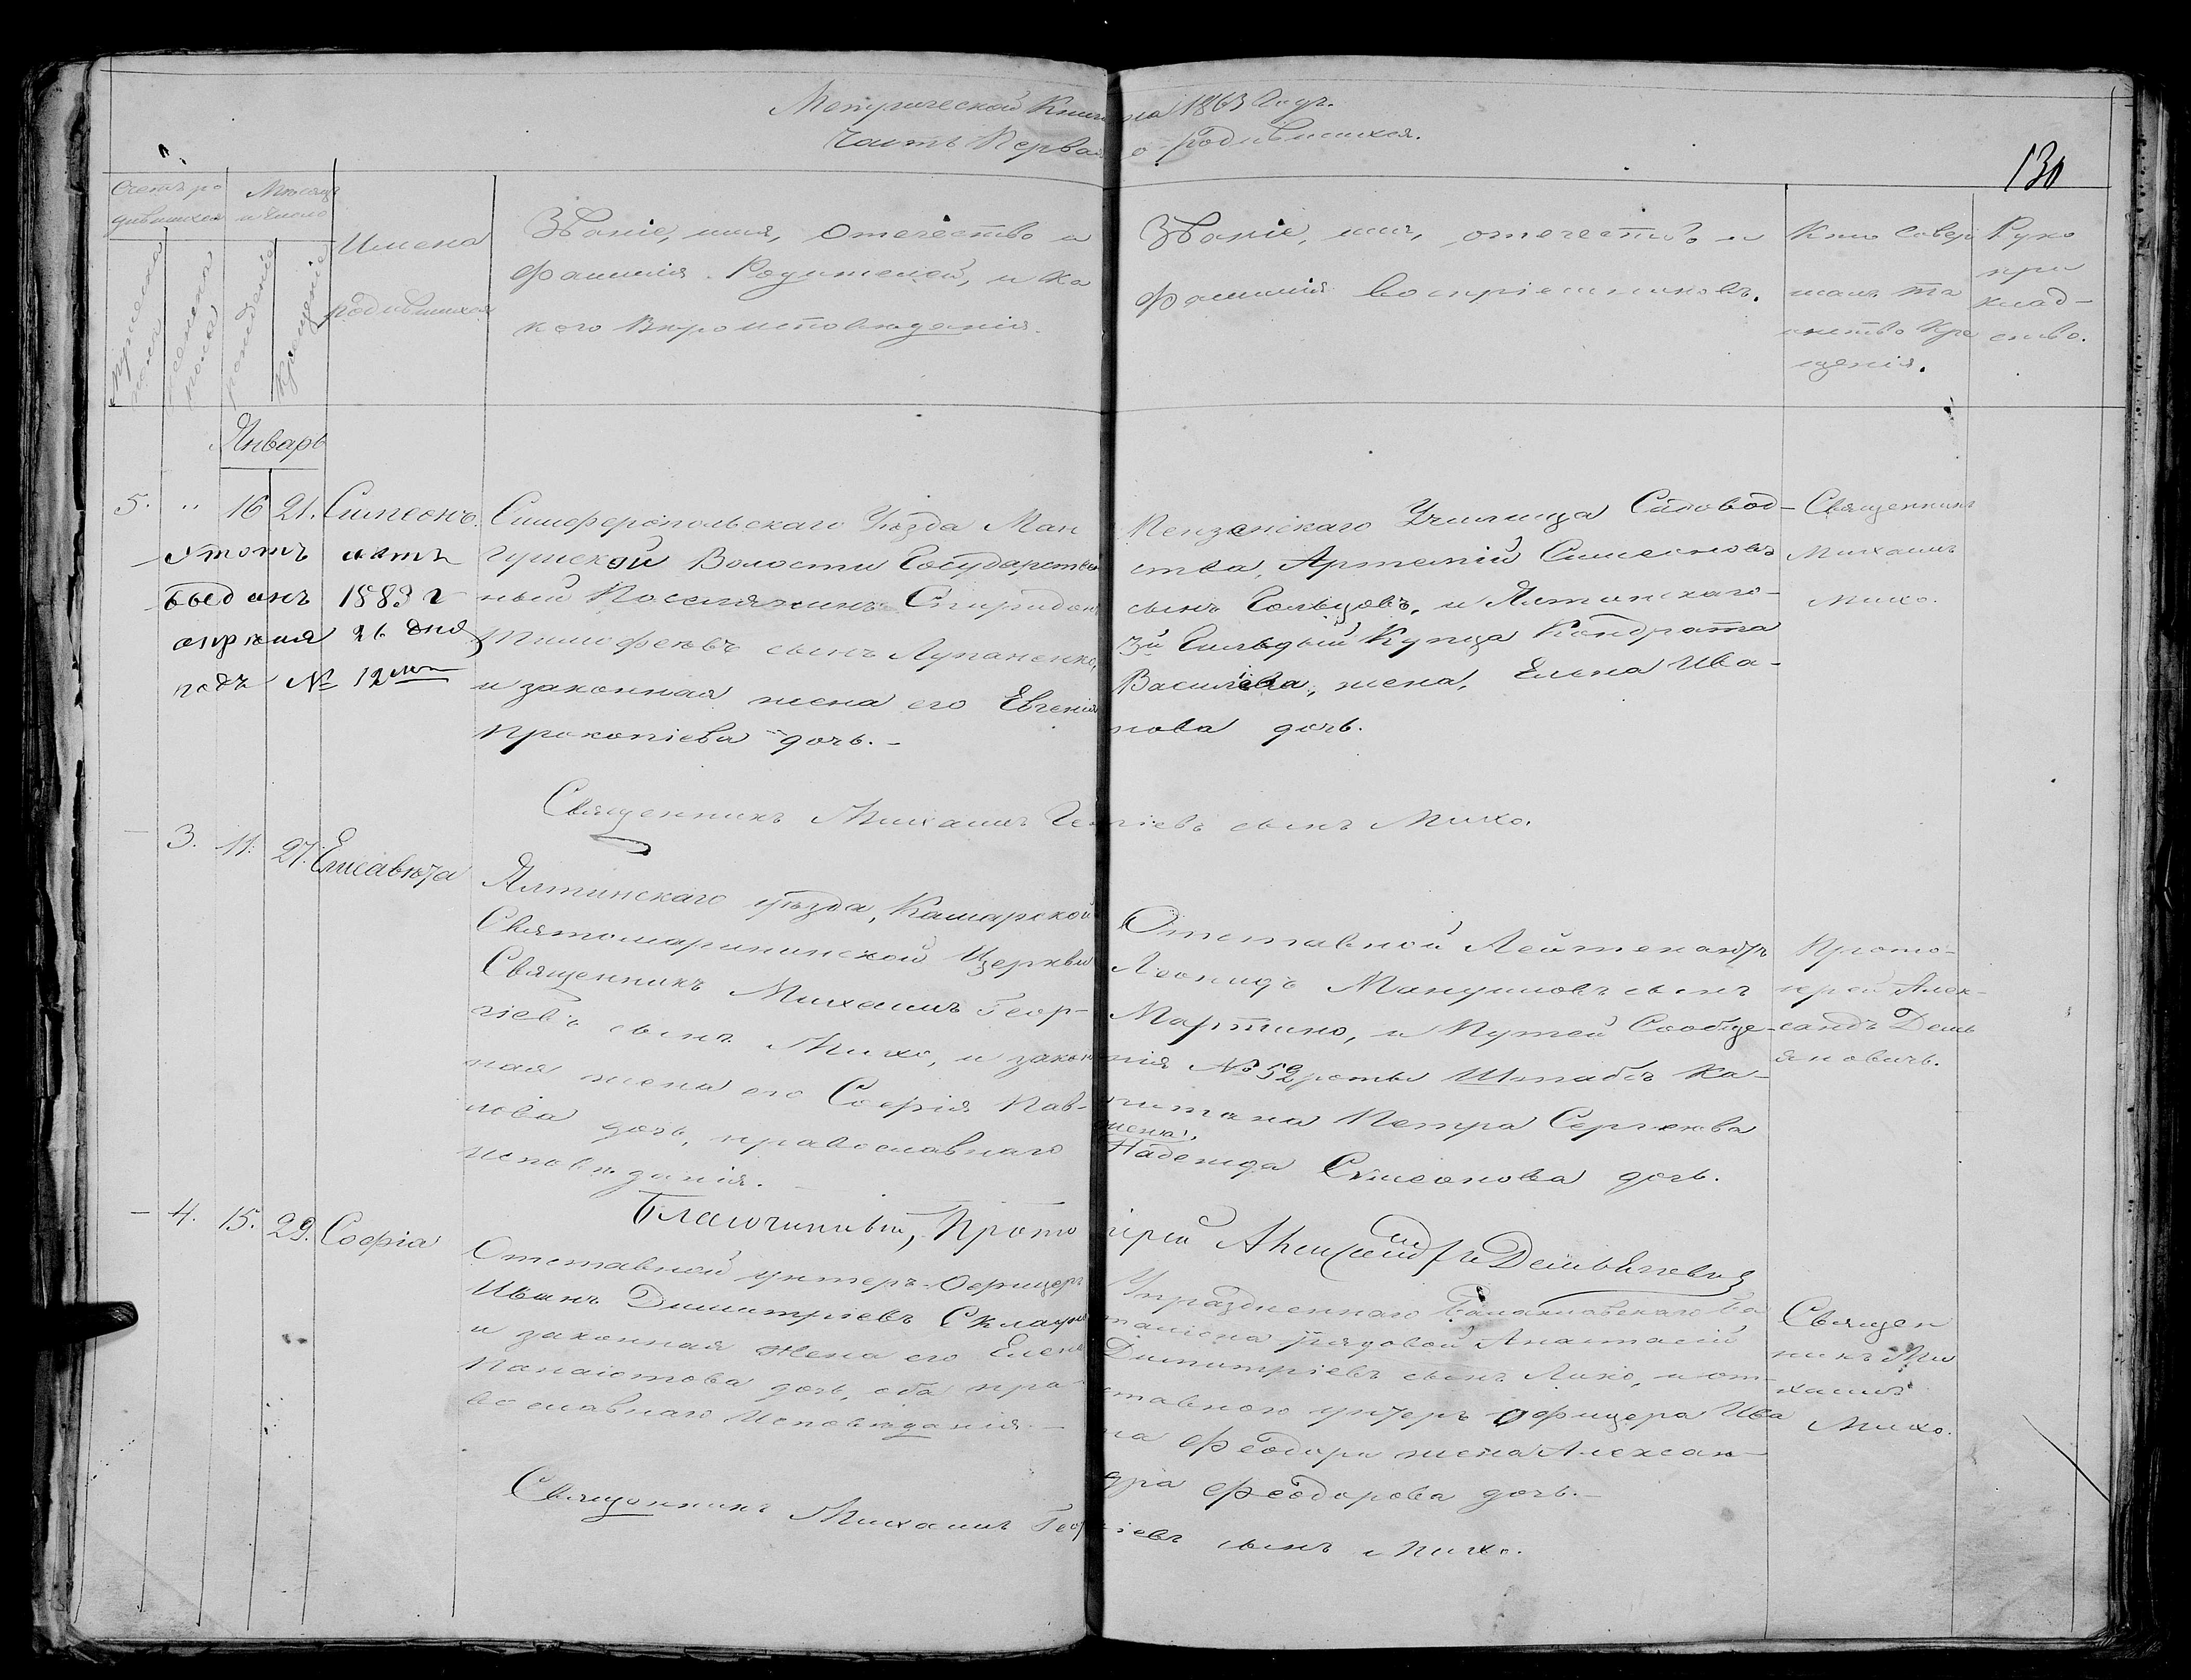 Метрической Книги на 1863 Годъ.
Часть Первая о родившихся.
130
Счетъ ро
дившихся
Мѣсяцъ
и число
Мужеска
пола
женска
пола
рожденія
Крещенія
Имена
родившихся
Званіе, имя, отечество и
фамилія Родителей, и ка
кого Вѣроисповѣданія.
Званіе, имя, отечество и
фамилія воспріемниковъ.
Кто совер
шалъ та
инство Кре
щенія.
Руко
при
клад-
ство.
Январь
5. " 16 21. Симеонъ.
Этотъ актъ
выданъ 1883 г
апрѣля 26 дня
подъ № 12
Симферопольскаго Уѣзда Ман
гушской Волости Государствен
ный Поселянинъ Спиридонъ
Тимофеевъ сынъ Лупаненко,
и законная жена его Евгенія
Прокопіева дочь. -
Пензенскаго Училища Садовод-
ства, Артемій Симеоновъ
сынъ Гольцовъ, и Ялтинскаго
3й Гильдіи Купца Кондрата
Васильева, жена, Елена Ива-
нова дочь.
Священникъ
Михаилъ
Михо.
Священникъ Михаилъ Георгіевъ сынъ Михо.
- 3. 11. 27. Елисавета
Ялтинскаго уѣзда, Камарской
Святомарининской Церкви
Священникъ Михаилъ Геор-
гіевъ сынъ Михо, и закон
ная жена его Софія Пав-
лова дочь, православнаго
исповѣданія. -
Отставной Лейтенантъ
Леонидъ Мануиловъ сынъ
Мартино, и Путей Сообще-
нія № 52 роты Штабсъ Ка-
питана Петра Сергеева
жена,
Надежда Симеонова дочь.
Прото-
іерей Алек-
сандъ Демь
яновичъ.
Благочинный, Протоіерей Александръ Демьяновичъ
- 4. 15. 29. Софіа
Отставной унтеръ-Офицеръ
Иванъ Димитріевъ
и законная жена его Елена
Панаіотова дочь, оба пра-
вославнаго Исповѣданія. -
Упраздненнаго Балаклавскаго Ба
таліона рядовой Анастасій
Димитріевъ сынъ Лико, и от-
ставного унтеръ офицера Ива
на Феодори жена Алексан-
дра Феодорова дочь. -
Священ
никъ Ми
хаилъ
Михо.
Священникъ Михаилъ Георгіевъ сынъ Михо.